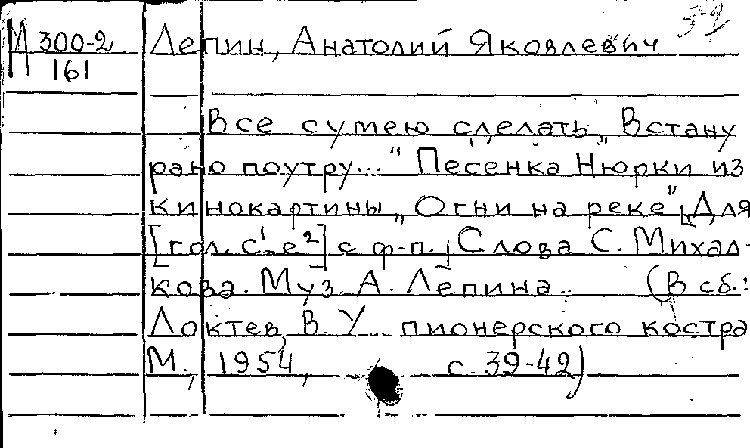 М 300-2 Лепин, Анатолий Яковлевич
161
Все сумею сделать „Встану
рано поутру..." Песенка Нюрки из
кинокартины „Огни на реке" Для
[гол. c¹-e²] с ф-п. Слова С. Михал-
кова. Муз. А. Лепина. (В сб.:
Локтев, В. У пионерского костра
М., 1954, с. 39-42)